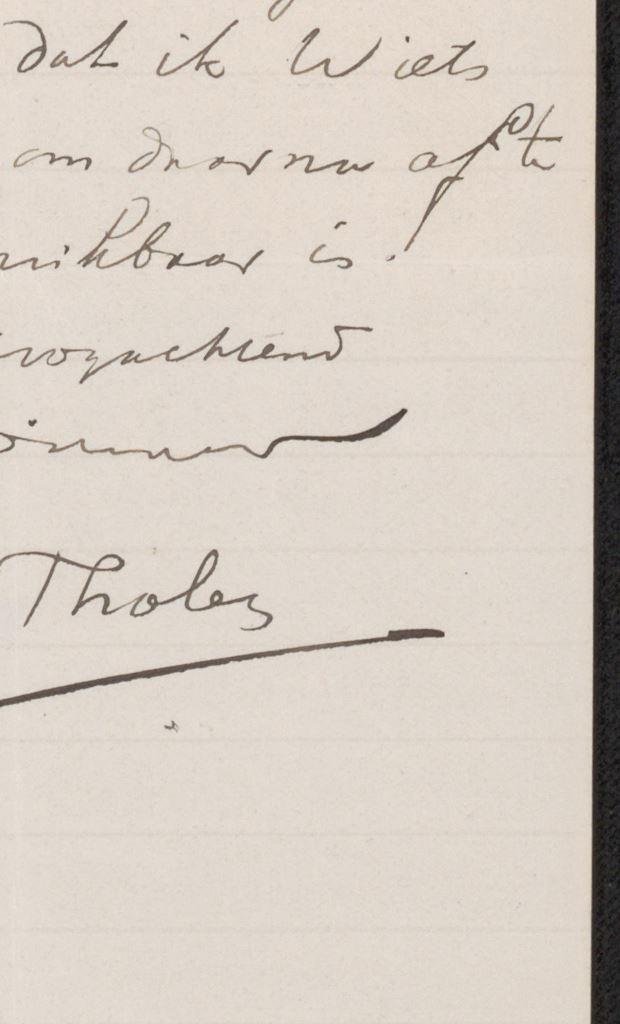 dat ik U iets
om daarna af te
uikbaar is.
oogachtend
Dienaar
Tholen